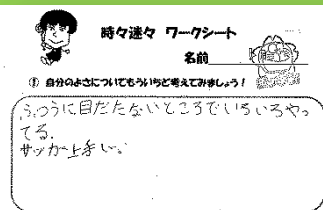 時々迷々 ワークシート
名前
① 自分のよさについてもういちど考えてみましょう！
ふつうに目だたないところでいろいろやっ
てる。
サッカー上手い。